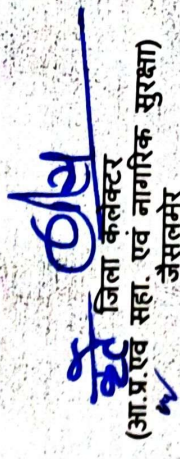 जिला कलेक्टर
(आ.प्र.एवं सहा. एवं नागरिक सुरक्षा)
जैसलमेर